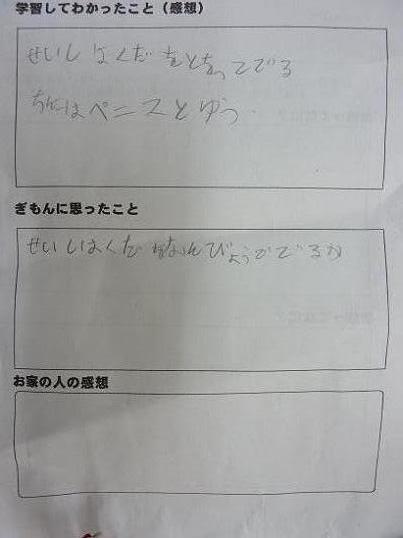 学習してわかったこと(感想)
せいしはくだをとおってでる
ちんこはペニスとゆう
ぎもんに思ったこと
せいしはくだをなんびょうででるか
お家の人の感想